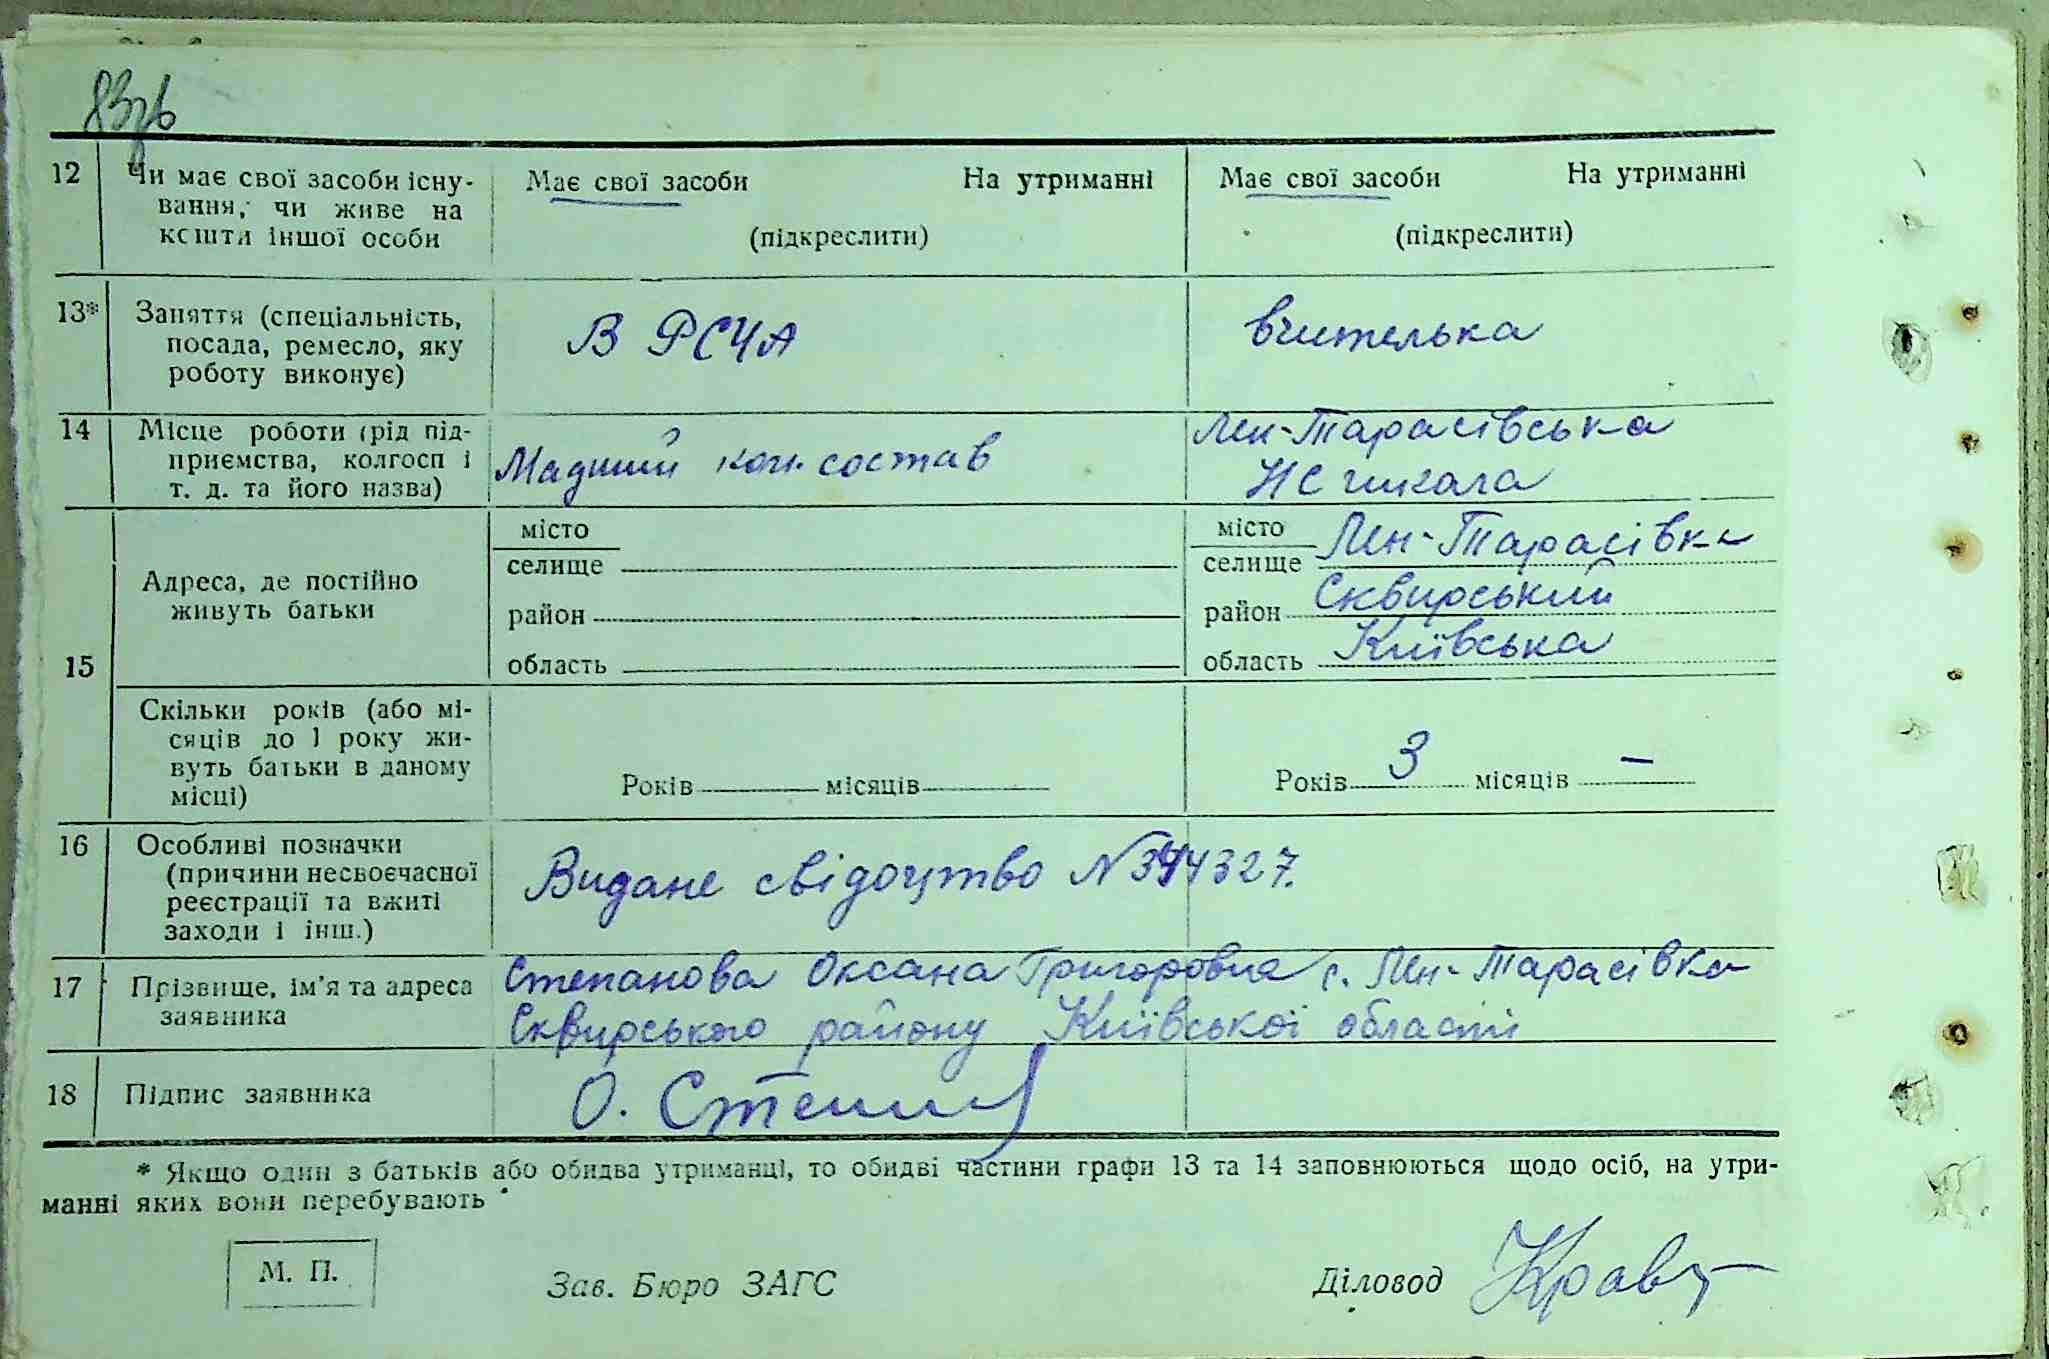 83зв
12 Чи має свої засоби існу- Має свої засоби На утриманні Має свої засоби На утриманні
вання, чи живе на
кошти іншої особи (підкреслити) (підкреслити)
13* Заняття (спеціальність,
посада, ремесло, яку В РСЧА вчителька
роботу виконує)
14 Місце роботи (рід під- Лен-Тарасівська
приємства, колгосп і Мадший ком. состав
т. д. та його назва) НС школа
місто місто Лен-Тарасівка
Адреса, де постійно селище селище
живуть батьки район район Сквирський
15 область область Київська
Скільки років (або мі-
сяців до 1 року жи-
вуть батьки в даному Років місяців Років 3 місяців –
місці)
16 Особливі позначки
(причини несвоєчасної Видане свідоцтво N 344327.
реєстрації та вжиті
заходи і інш.)
17 Прізвище, ім'я та адреса Степанова Оксана Григоровна с. Лен-Тарасівка
заявника Сквирського району Київської області
18 Підпис заявника О. Степан
* Якщо один з батьків або обидва утриманці, то обидві частини графи 13 та 14 заповнюються щодо осіб, на утри-
манні яких вони перебувають
М. П. Зав. Бюро ЗАГС Діловод Кравц